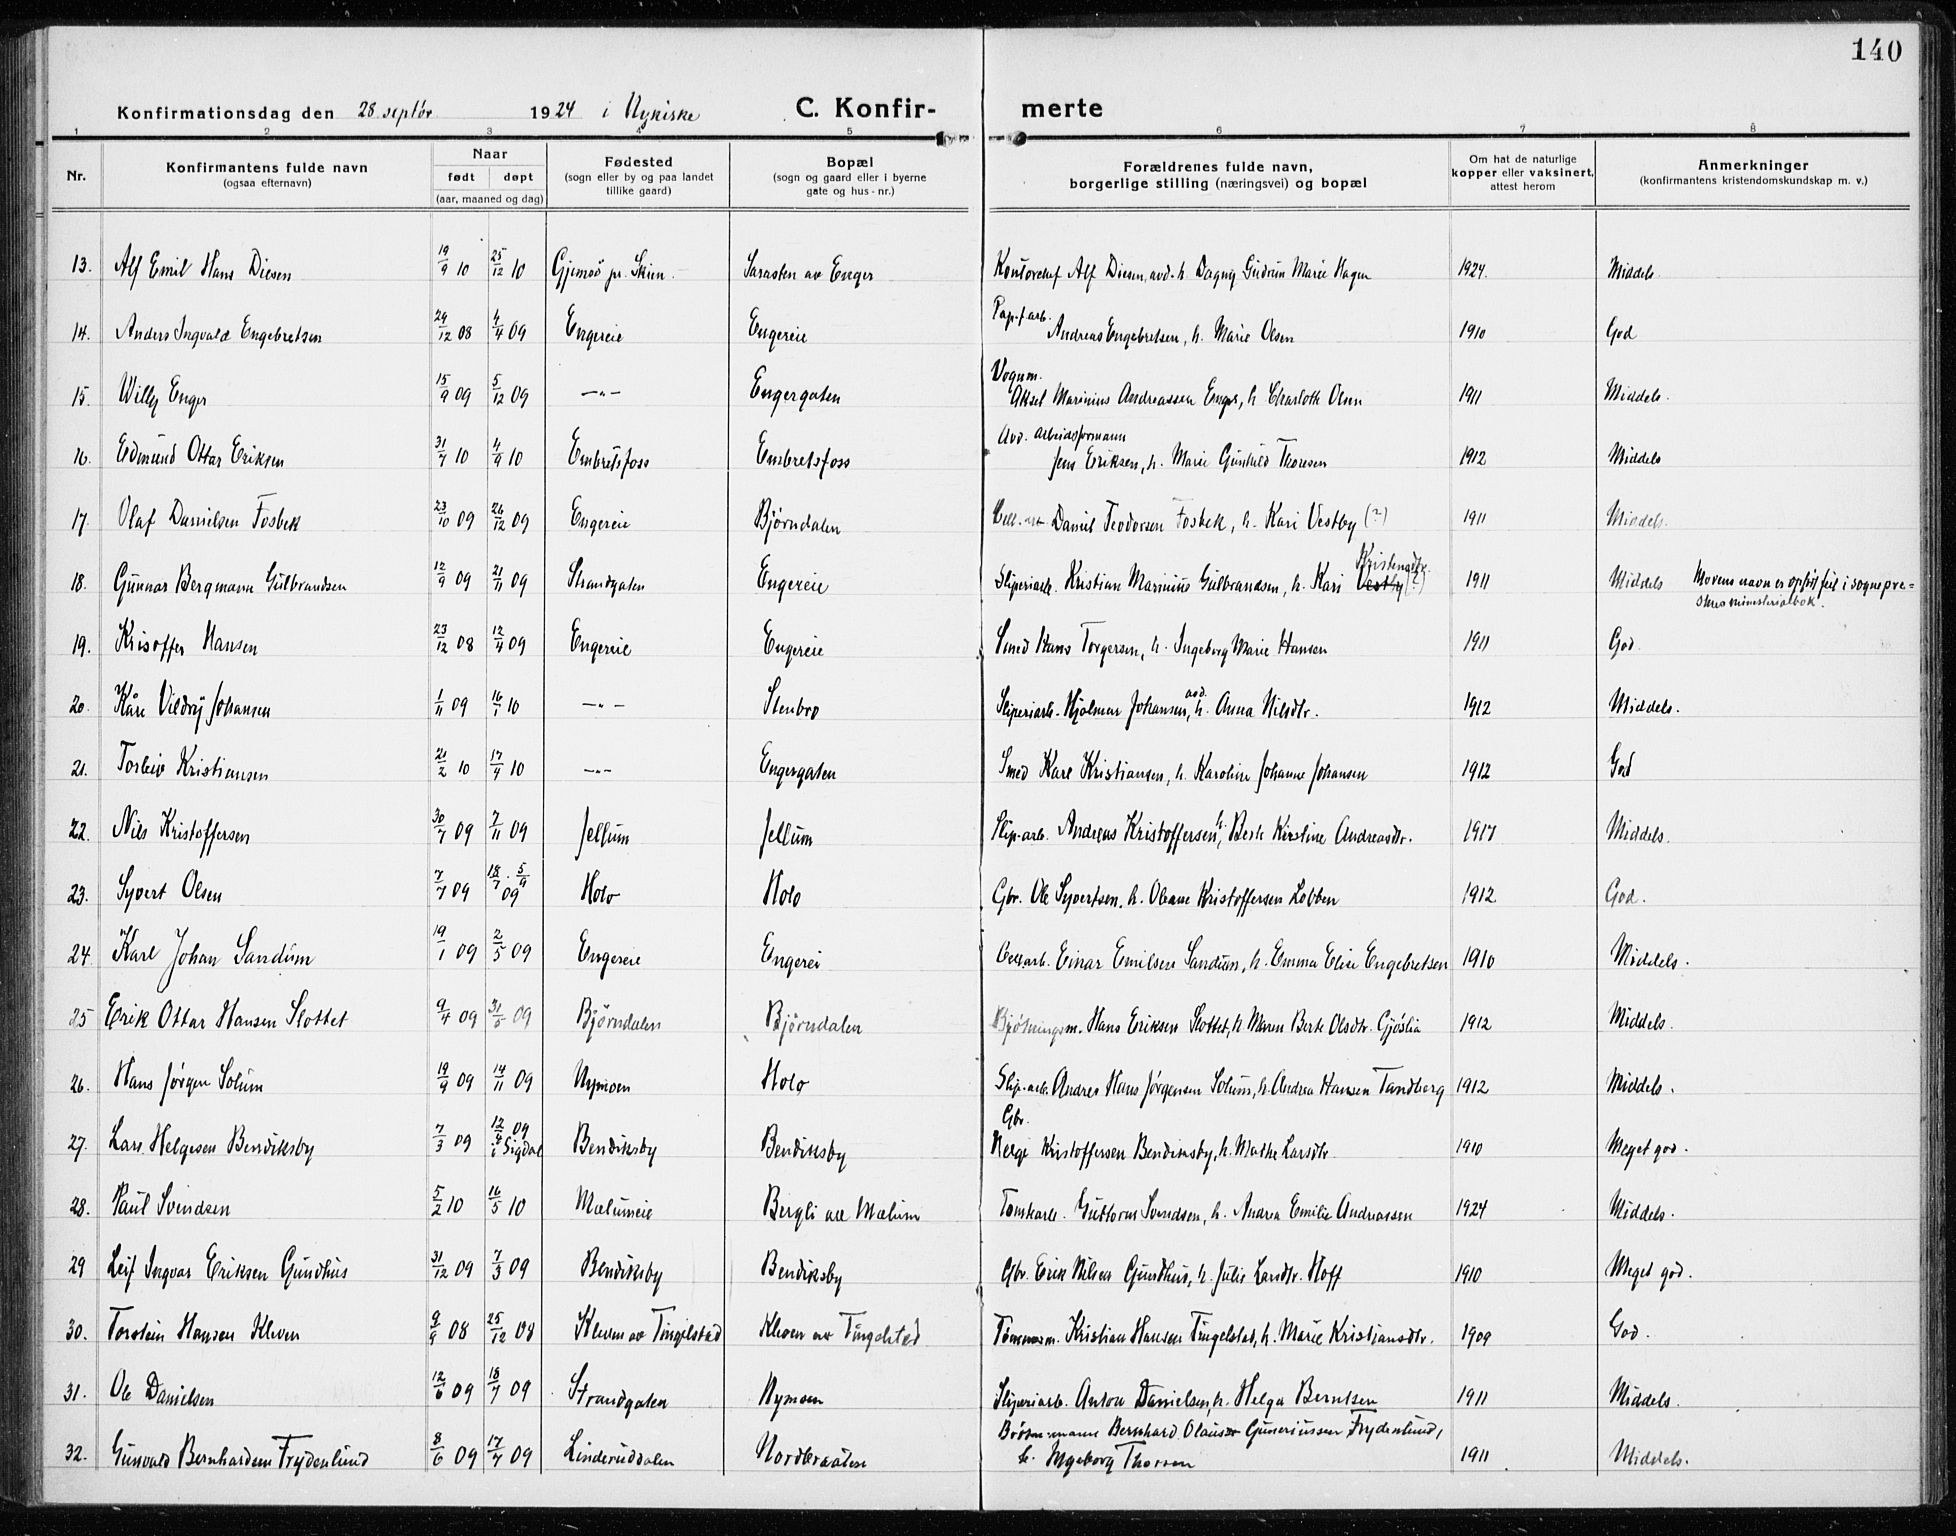 140
Konfirmationsdag den 28. septbr 1924 i Nykirke C. Konfir- merte
1 2 3 4 5 6 7 8
Nr. Konfirmantens fulde navn (ogsaa efternavn) Naar født døpt (aar, maaned og dag) Fødested (sogn eller by og paa landet tillike gaard) Bopæl (sogn og gaard eller i byerne gate og hus-nr.) Forældrenes fulde navn, borgerlige stilling (næringsvei) og bopæl Om hat de naturlige kopper eller vaksinert, attest herom Anmerkninger (konfirmantens kristendomskundskap m. v.)
13. Alf Emil Hans Diesen 19/9 10 25/12 10 Gjemsø pr. Skien Sarasten av Enger Kontorchef Alf Diesen, avd. h. Dagny Gudrun Marie Hagen 1924. Middels.
14. Anders Ingvald Engebretsen 29/12 08 4/4 09 Engereie Engereie Pap.f.arb. Andreas Engebretsen, h. Marie Olsen 1910 God
15. Willy Enger 15/9 09 5/12 09 —"— Engergaten Vognm. Aksel Marinius Andreassen Enger, h. Charloth Olsen 1911 Middels.
16. Edmund Ottar Eriksen 31/7 10 4/9 10 Embretsfoss Embretsfoss Avd. arbeidsformann Jens Eriksen, h. Marie Gunhild Thoresen 1912 Middels
17. Olaf Danielsen Fosbek 23/10 09 26/12 09 Engereie Bjørndalen Cell.-arb. Daniel Teodorsen Fosbek, h. Kari Vestby (?) 1911 Middels.
18. Gunnar Bergmann Gulbrandsen 12/9 09 21/11 09 Strandgaten Engereie Sliperiarb. Kristian Marinius Gulbrandsen, h. Kari Vestby (?) Kristensdtr. 1911 Middels Morens navn er opført feil i sognepre-
stens ministerialbok.
19. Krisoffer Hansen 23/12 08 12/4 09 Engereie Engereie Smed Hans Torgersen, h. Ingeborg Marie Hansen 1911 God.
20. Kåre Vildry Johansen 1/11 09 16/1 10 —"— Stenbro Sliperiarb. Hjalmar Johansen, avd. h. Anna Nilsdtr. 1912 Middels.
21. Torleiv Kristiansen 21/2 10 17/4 10 —"— Engergaten Smed Karl Kristiansen, h. Karoline Johanne Johansen 1912 God
22. Nils Kristoffersen 30/7 09 7/11 09 Jellum Jellum Slip.arb. Andreas Kristoffersen, h. Berte Kirstine Andreasdtr. 1917 Middels.
23. Syvert Olsen 7/7 09 18/7 . 5/9 09 Holo Holo Gbr. Ole Syvertsen. h. Oleane Kristoffersen Lobben 1912 God.
24. Karl Johan Sandum 19/1 09 2/5 09 Engereie Engerei Cell.arb. Einar Emilsen Sandum, h. Emma Elise Engebretsen 1910 Middels.
25 Erik Ottar Hansen Slottet 9/4 09 31/5 09 Bjørndalen Bjørndalen Fløtningsm. Hans Eriksen Slottet, h Maren Berte Olsdtr. Gjøslia 1912 Middels.
26. Hans Jørgen Solum 19/9 09 14/11 09 Nymoen Holo Slip.arb. Andres Hans Jørgensen Solum, h. Andrea Hansen Tandberg 1912 Middels.
27. Lars Helgesen Bendiksby 7/3 09 12/4 09 i Sigdal Bendiksby Bendiksby Gbr. Helge Kristoffersen Bendiksby, h. Mathe Larsdtr. 1910 Meget god.
28. Paul Svendsen 5/2 10 16/5 10 Mælumeie Bergli av Mælum Tomtearb. Guttorm Svendsen, h. Andrea Emilie Andreassen 1924 Middels.
29 Leif Ingvar Eriksen Gundhus 31/12 09 7/3 09 Bendiksby Bendiksby Gbr. Erik Nilsen Gundhus, h. Julie Larsdtr. Hoff 1910 Meget god.
30. Torstein Hansen Kleven 9/9 08 25/12 08 Kleven av Tingelstad Kleven av Tingelstad Tømmerm. Kristian Hansen Tingelstad, h. Marie Kristjansdtr. 1909 God.
31. Ole Danielsen 12/6 09 18/7 09 Strandgaten Nymoen Sliperiarb. Anton Danielsen, h. Helga Berntsen 1911 Middels.
32. Gunvald Bernhardsen Frydenlund 8/6 09 17/7 09 Linderuddalen Nordbraaten Bernhard Olausen Guneriussen Frydenlund, h. Ingeborg Thorsen 1911 Middels.